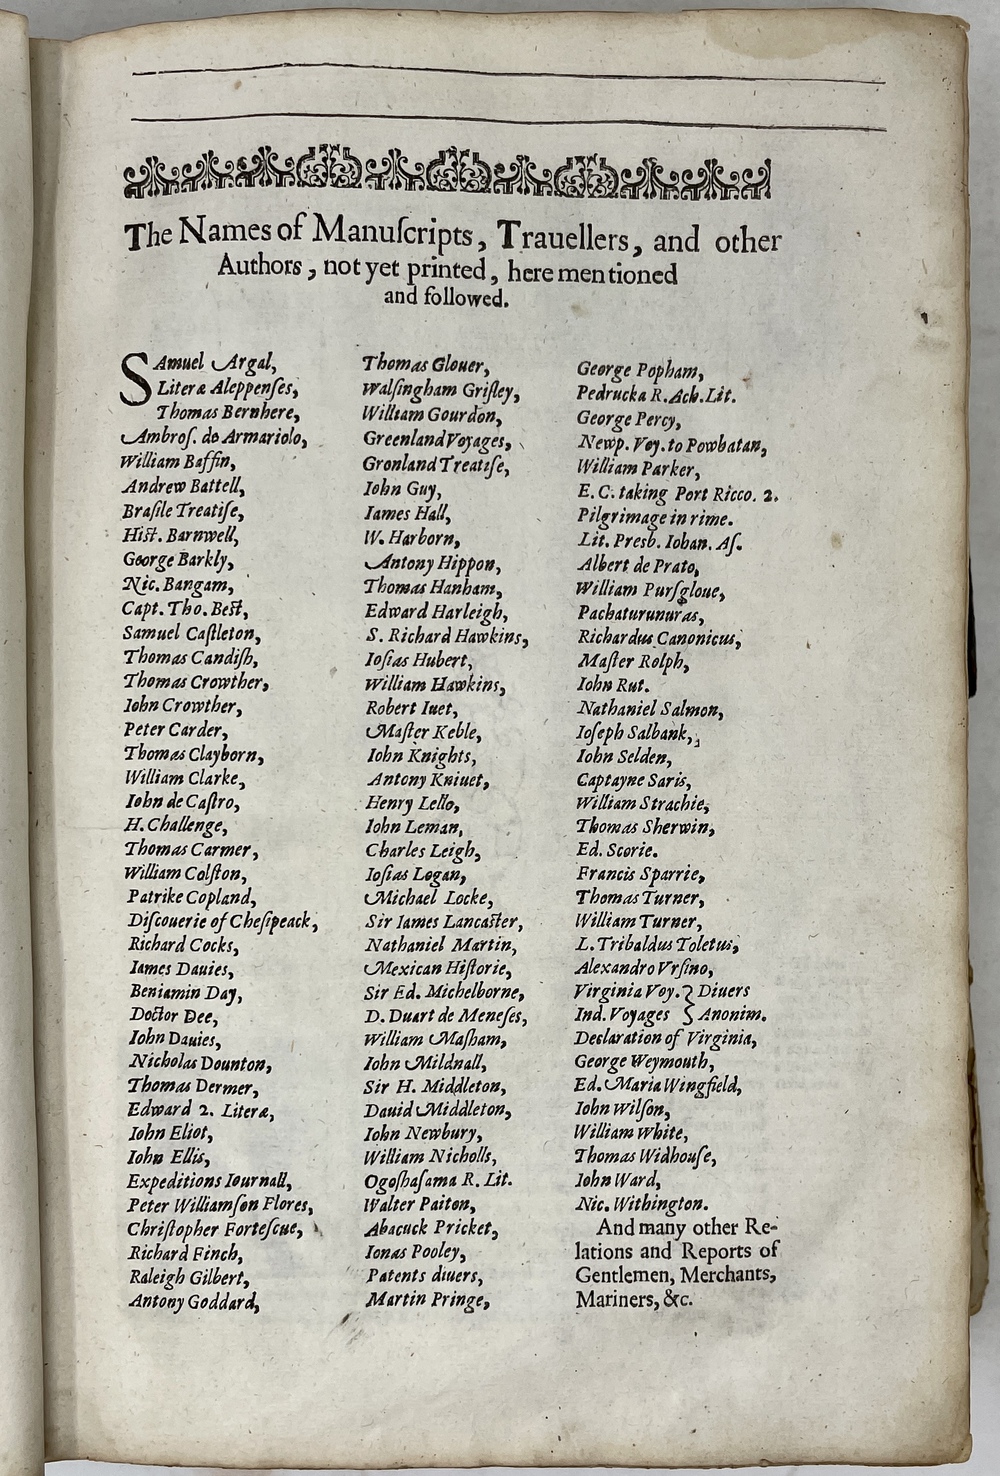 The Names of Manuſcripts, Trauellers, and other
Authors, not yet printed, here mentioned
and followed.
SAmuel Argal,
Literæ Aleppenſes,
Thomas Bernhere,
Ambroſ. de Armariolo,
William Baffin,
Andrew Battell,
Braſile Treatiſe,
Hiſt. Barnwell,
George Barkly,
Nic. Bangam,
Capt. Tho. Beſt,
Samuel Caſtleton,
Thomas Candiſh,
Thomas Crowther,
Iohn Crowther,
Peter Carder,
Thomas Clayborn,
William Clarke,
Iohn de Caſtro,
H. Challenge,
Thomas Carmer,
William Colſton,
Patrike Copland,
Diſcouerie of Cheſipeack,
Richard Cocks,
Iames Dauies,
Beniamin Day,
Doctor Dee,
Iohn Dauies,
Nicholas Dounton,
Thomas Dermer,
Edward 2. Literæ,
Iohn Eliot,
Iohn Ellis,
Expeditions Iournall,
Peter Williamſon Flores,
Chriſtopher Forteſcue,
Richard Finch,
Raleigh Gilbert,
Antony Goddard,
Thomas Glouer,
Walſingham Griſley,
William Gourdon,
Greenland Voyages,
Gronland Treatiſe,
Iohn Guy,
Iames Hall,
W. Harborn,
Antony Hippon,
Thomas Hanham,
Edward Harleigh,
S. Richard Hawkins,
Ioſias Hubert,
William Hawkins,
Robert Iuet,
Maſter Keble,
Iohn Knights,
Antony Kniuet,
Henry Lello,
Iohn Leman,
Charles Leigh,
Ioſias Logan,
Michael Locke,
Sir Iames Lancaſter,
Nathaniel Martin,
Mexican Hiſtorie,
Sir Ed. Michelborne,
D. Duart de Meneſes,
William Maſham,
Iohn Mildnall,
Sir H. Middleton,
Dauid Middleton,
Iohn Newbury,
William Nicholls,
Ogoſhaſama R. Lit.
Walter Paiton,
Abacuck Pricket,
Ionas Pooley,
Patents diuers,
Martin Pringe,
George Popham,
Pedrucka R. Ach. Lit.
George Percy,
Newp. Voy. to Powhatan,
William Parker,
E. C. taking Port Ricco. 2.
Pilgrimage in rime.
Lit. Presb. Iohan. Aſ.
Albert de Prato,
William Purſgloue,
Pachaturunuras,
Richardus Canonicus,
Maſter Rolph,
Iohn Rut.
Nathaniel Salmon,
Ioſeph Salbank,
Iohn Selden,
Captayne Saris,
William Strachie,
Thomas Sherwin,
Ed. Scorie.
Francis Sparrie,
Thomas Turner,
William Turner,
L. Tribaldus Toletus,
Alexandro Vrſino,
Virginia Voy. } Diuers
Ind. Voyages } Anonim.
Declaration of Virginia,
George Weymouth,
Ed. Maria Wingfield,
Iohn Wilſon,
William White,
Thomas Widhouſe,
Iohn Ward,
Nic. Withington.
And many other Re-
lations and Reports of
Gentlemen, Merchants,
Mariners, &c.